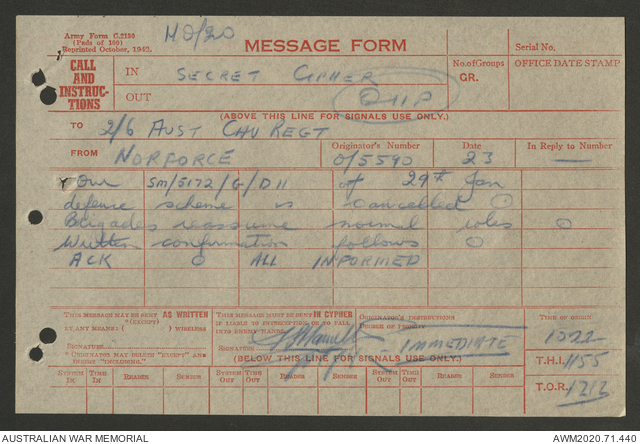 Army Form C.2130
(Pads of 100)
Reprinted October, 1942.
MESSAGE FORM
Serial No.
CALL AND INSTRUC-TIONS
IN SECRET CIPHER
No. of Groups
GR.
OFFICE DATE STAMP
OUT
(ABOVE THIS LINE FOR SIGNALS USE ONLY.)
TO 2/6 AUST CAV REGT
FROM NORFORCE
Originator's Number O/5590
Date 23
In Reply to Number —
Our SM/5172/G/D11 of 29th Jan
defence scheme is cancelled O
Brigades reassume normal roles O
Written confirmation follows O
ACK O ALL INFORMED
THIS MESSAGE MAY BE SENT AS WRITTEN
BY ANY MEANS ( ) WIRELESS
(*EXCEPT)
SIGNATURE
*ORIGINATOR MAY DELETE "EXCEPT" AND INSERT "INCLUDING."
THIS MESSAGE MUST BE SENT IN CYPHER
IF LIABLE TO INTERCEPTION OR TO FALL INTO ENEMY HANDS.
SIGNATURE
ORIGINATOR'S INSTRUCTIONS
DEGREE OF PRIORITY
IMMEDIATE
TIME OF ORIGIN
T.H.I. 1155
T.O.R. 1212
(BELOW THIS LINE FOR SIGNALS USE ONLY.)
SYSTEM IN TIME IN READER SENDER SYSTEM OUT TIME OUT READER SENDER SYSTEM OUT TIME OUT READER SENDER
AUSTRALIAN WAR MEMORIAL
AWM2020.71.440